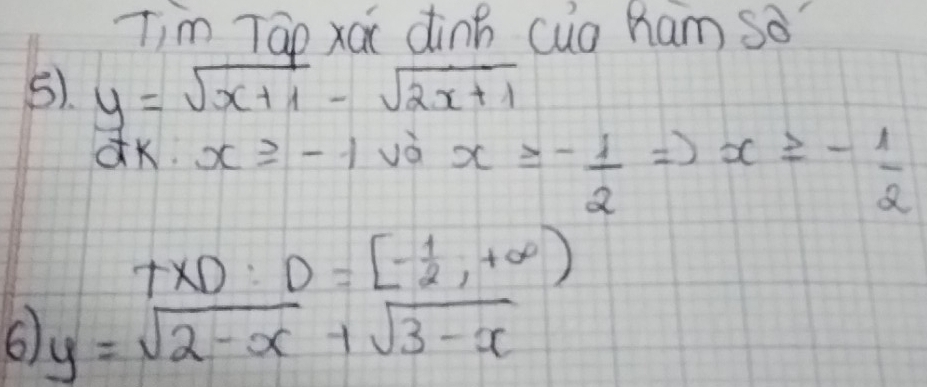 Tìm Tập xác định của hàm số
5). y = √(x+1) - √(2x+1)
đK: x ≥ -1 và x ≥ -1/2 => x ≥ -1/2
TXD: D = [-1/2; +∞)
6) y = √(2-x) + √(3-x)